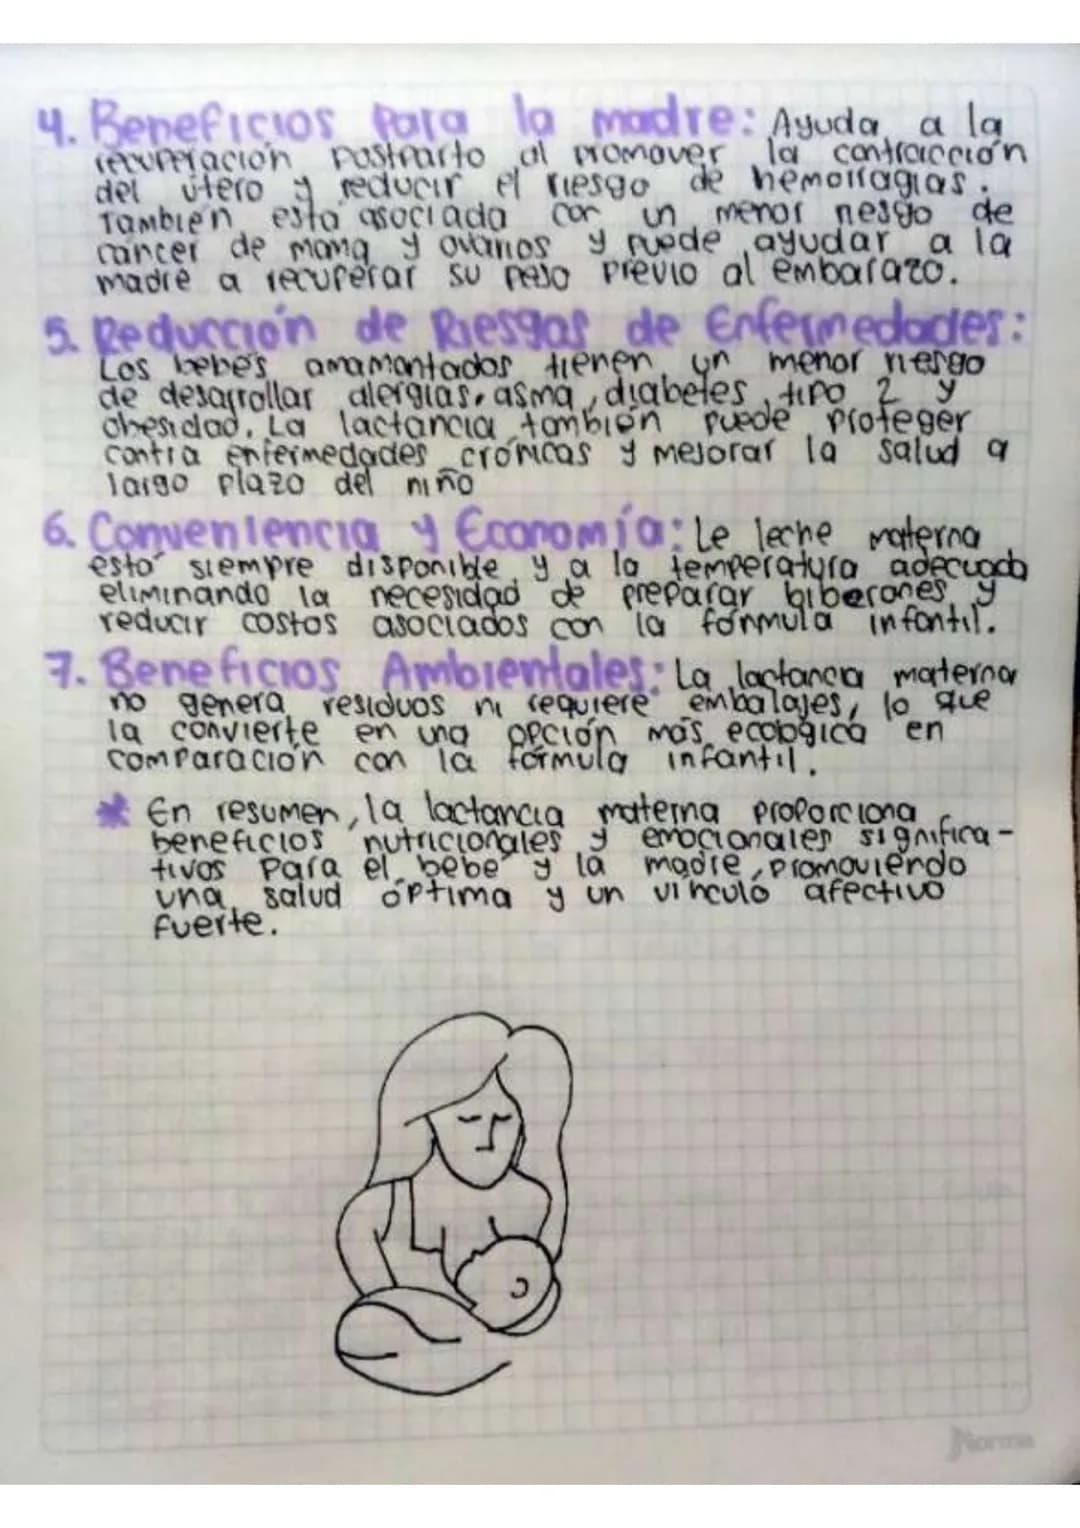 4. Beneficios Para la madre: Ayuda a la
recuperación postparto al promover la contracción
del útero y reducir el riesgo de hemorragias.
También está asociada con un menor riesgo de
cáncer de mama y ovarios y puede ayudar a la
madre a recuperar su peso previo al embarazo.
5. Reducción de Riesgos de Enfermedades:
Los bebés amamantados tienen un menor riesgo
de desarrollar alergias, asma, diabetes tipo 2 y
obesidad. La lactancia también puede proteger
contra enfermedades crónicas y mejorar la salud a
largo plazo del niño
6. Conveniencia y Economía: Le leche materna
está siempre disponible y a la temperatura adecuada
eliminando la necesidad de preparar biberones y
reducir costos asociados con la fórmula infantil.
7. Beneficios Ambientales: La lactancia materna
no genera residuos ni requiere embalajes, lo que
la convierte en una opción más ecológica en
comparación con la fórmula infantil.
* En resumen, la lactancia materna proporciona
beneficios nutricionales y emocionales significa-
tivos para el bebé y la madre, promoviendo
una salud óptima y un vínculo afectivo
fuerte.
Norma